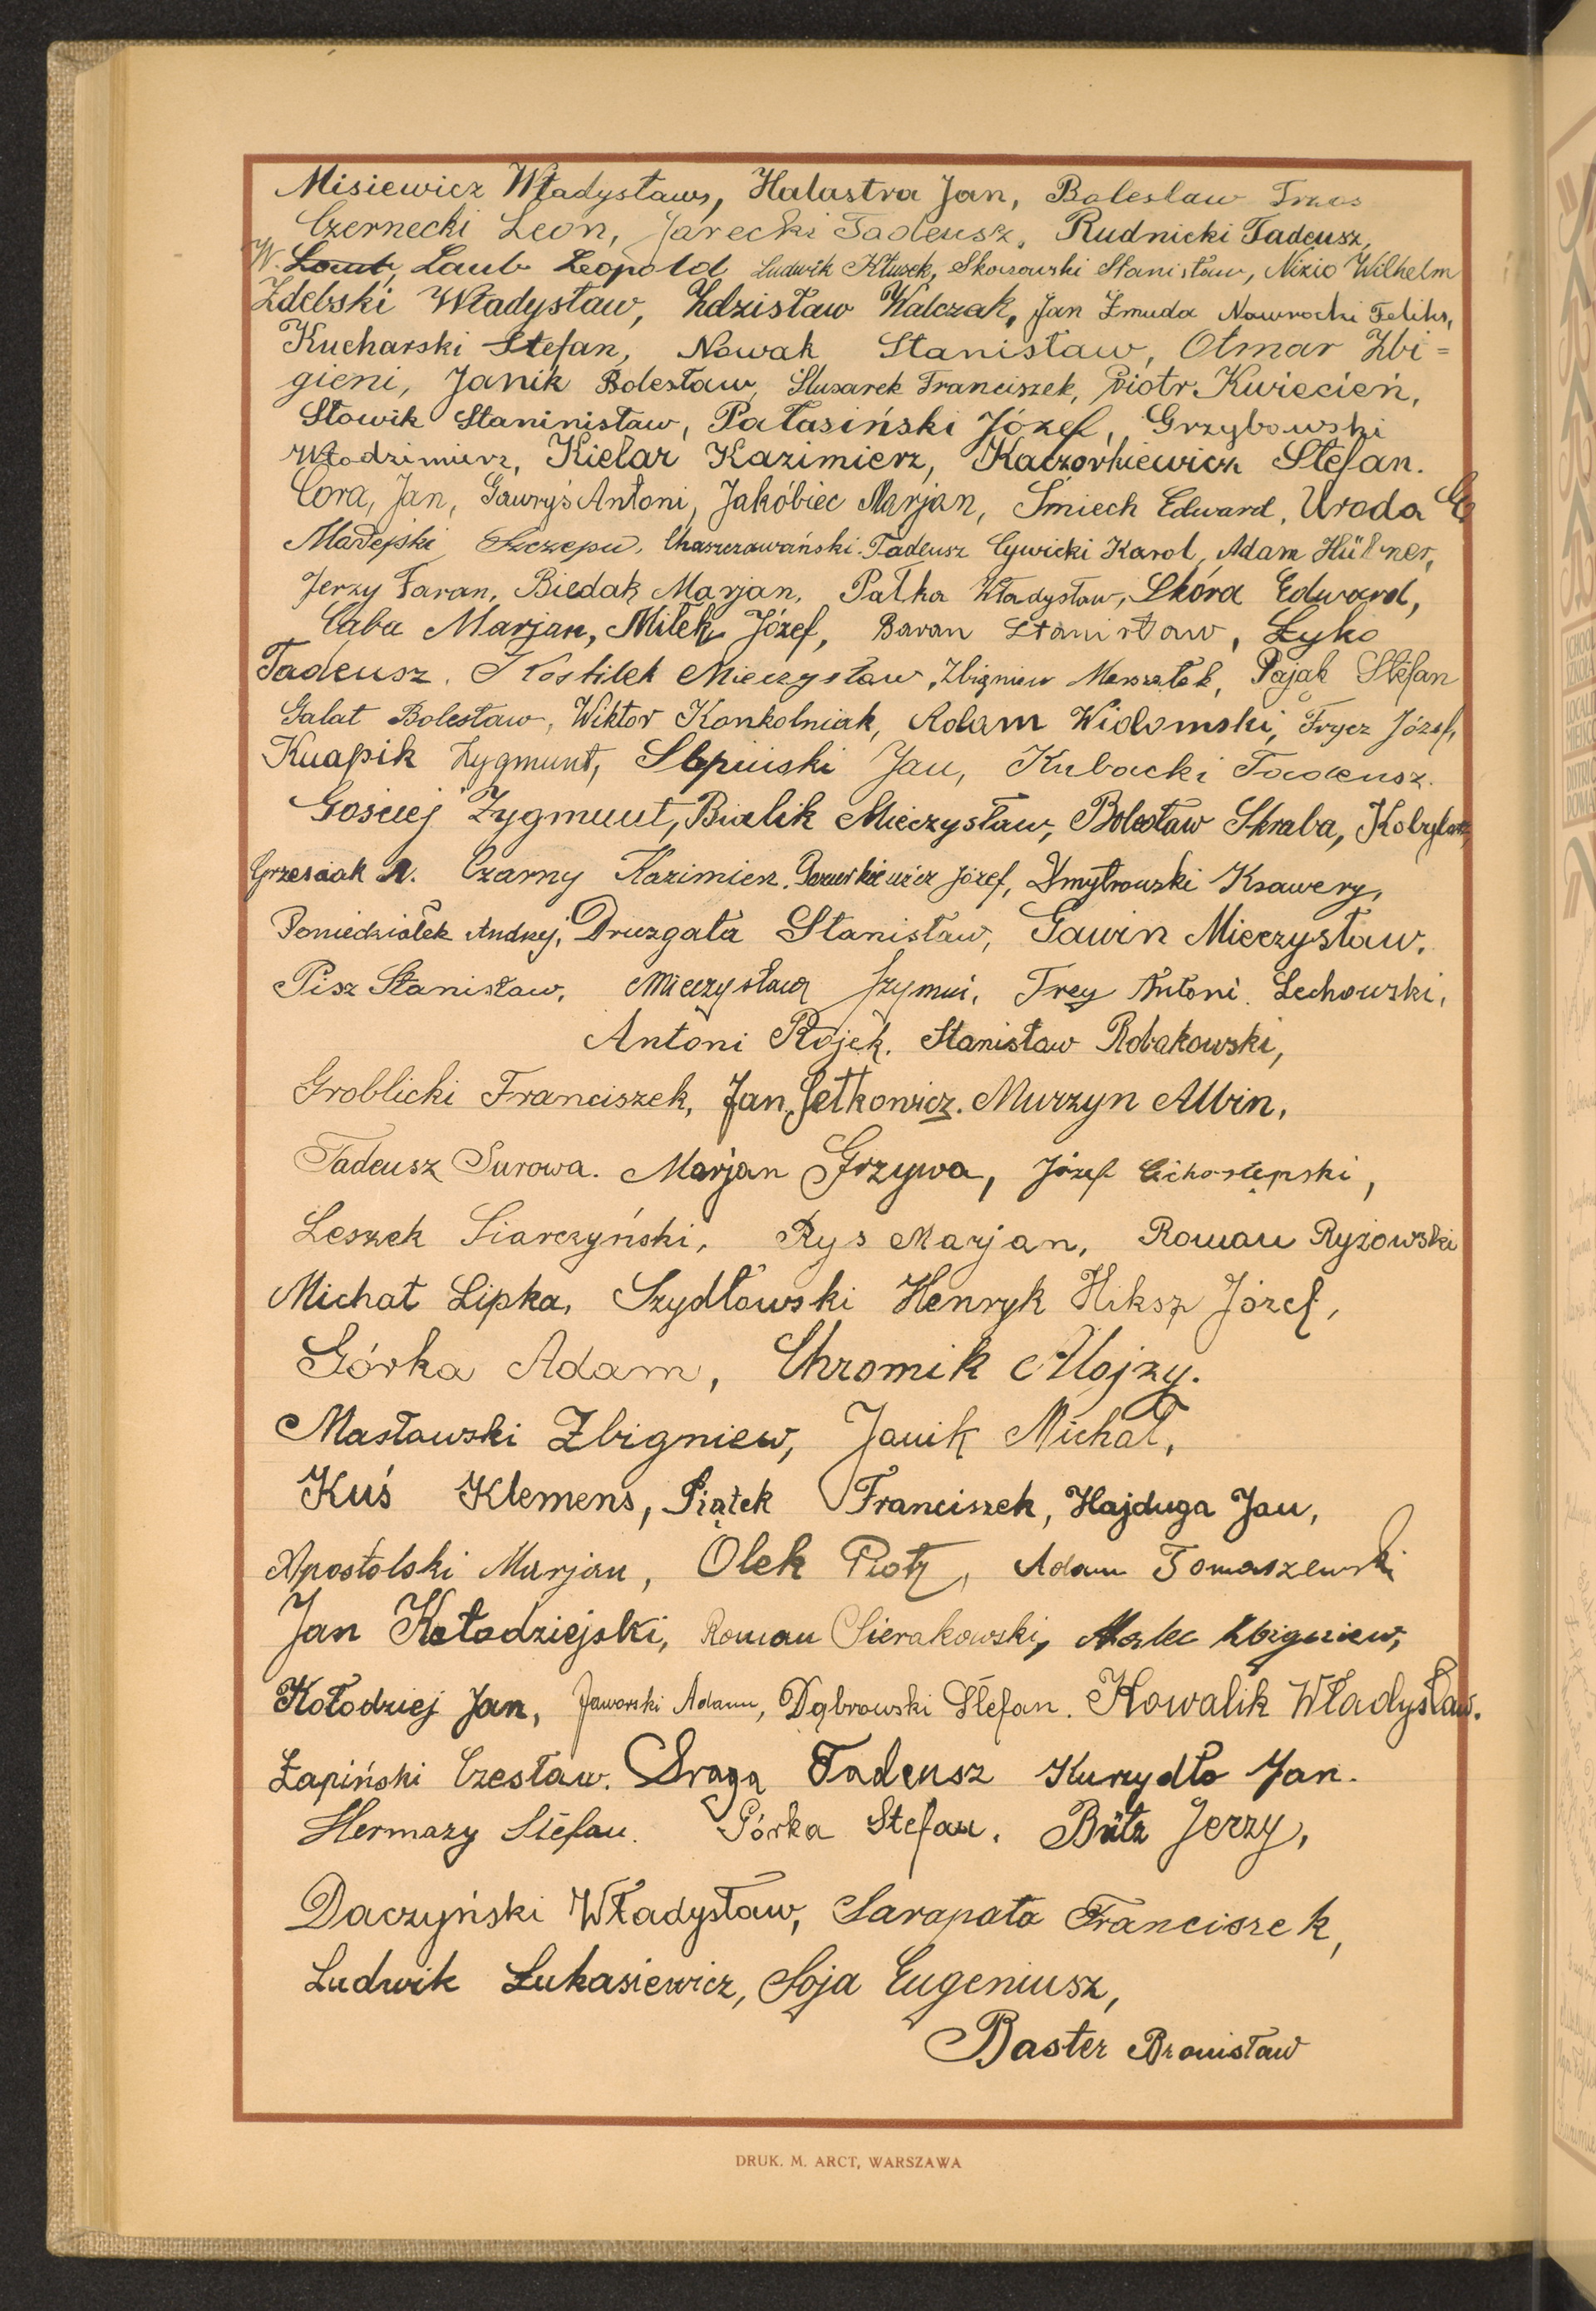 Misiewicz Władysław, Halastra Jan, Bolesław Trzos
Czernecki Leon, Jarecki Tadeusz, Rudnicki Tadeusz,
W. Laub, Laub Leopold Ludwik Kłusek, Skoczowski Stanisław, Nizio Wilhelm
Zdebski Władysław, Zdzisław Walczak, Jan Żmuda Nawrocki Feliks,
Kucharski Stefan, Nowak Stanisław, Otmar Zbi=
gieni, Janik Bolesław, Ślusarek Franciszek, Piotr Kwiecień,
Słowik Staninisław, Pałasiński Józef, Grzybowski
Włodzimierz, Kielar Kazimierz, Kaczorkiewicz Stefan.
Cora, Jan, Gawryś Antoni, Jakóbiec Marjan, Śmiech Edward, Uroda
Madejski Szczepan, Chaszczowański Tadeusz Cywicki Karol, Adam Hübner,
Jerzy Faran, Biedak Marjan, Pałka Władysław, Skóra Edward,
Caba Marjan, Miłek Józef, Baran Stanisław, Łyko
Tadeusz, Kostilek Mieczysław, Zbigniew Marszałek, Pająk Stefan
Galat Bolesław, Wiktor Konkolniak, Adam Widomski, Frycz Józef,
Knapik Zygmunt, Ślepiński Jan, Kubacki Tadeusz.
Gościej Zygmunt, Bialik Mieczysław, Bolesław Skraba, Kobylarz,
Grzesiak A. Czarny Kazimierz, Józef, Dmytrowski Ksawery,
Poniedziałek Andrzej, Druzgała Stanisław, Gawin Mieczysław.
Pisz Stanisław, Mieczysław Frey Antoni. Lechowski,
Antoni Rojek. Stanisław Robakowski,
Groblicki Franciszek, Jan Setkowicz. Murzyn Albin,
Tadeusz Surowa. Marjan Grzywa, Józef Cichostępski,
Leszek Siarczyński, Rys Marjan, Roman Ryżowski
Michał Lipka, Szydłowski Henryk Hiksz Józef,
Górka Adam, Chromik Alojzy.
Masławski Zbigniew, Janik Michał,
Kuś Klemens, Piątek Franciszek, Hajduga Jan,
Apostolski Marjan, Olek Piotr, Adam Tomaszewski
Jan Kołodziejski, Roman Sierakowski, Malec Zbigniew,
Kołodziej Jan, Jaworski Adam, Dąbrowski Stefan. Kowalik Władysław.
Łapiński Czesław. Sraga Tadeusz Kurzydło Jan.
Hermazy Stefan. Górka Stefan. Bütz Jerzy,
Daczyński Władysław, Sarapata Franciszek,
Ludwik Łukasiewicz, Soja Eugeniusz,
Baster Bronisław
DRUK. M. ARCT, WARSZAWA